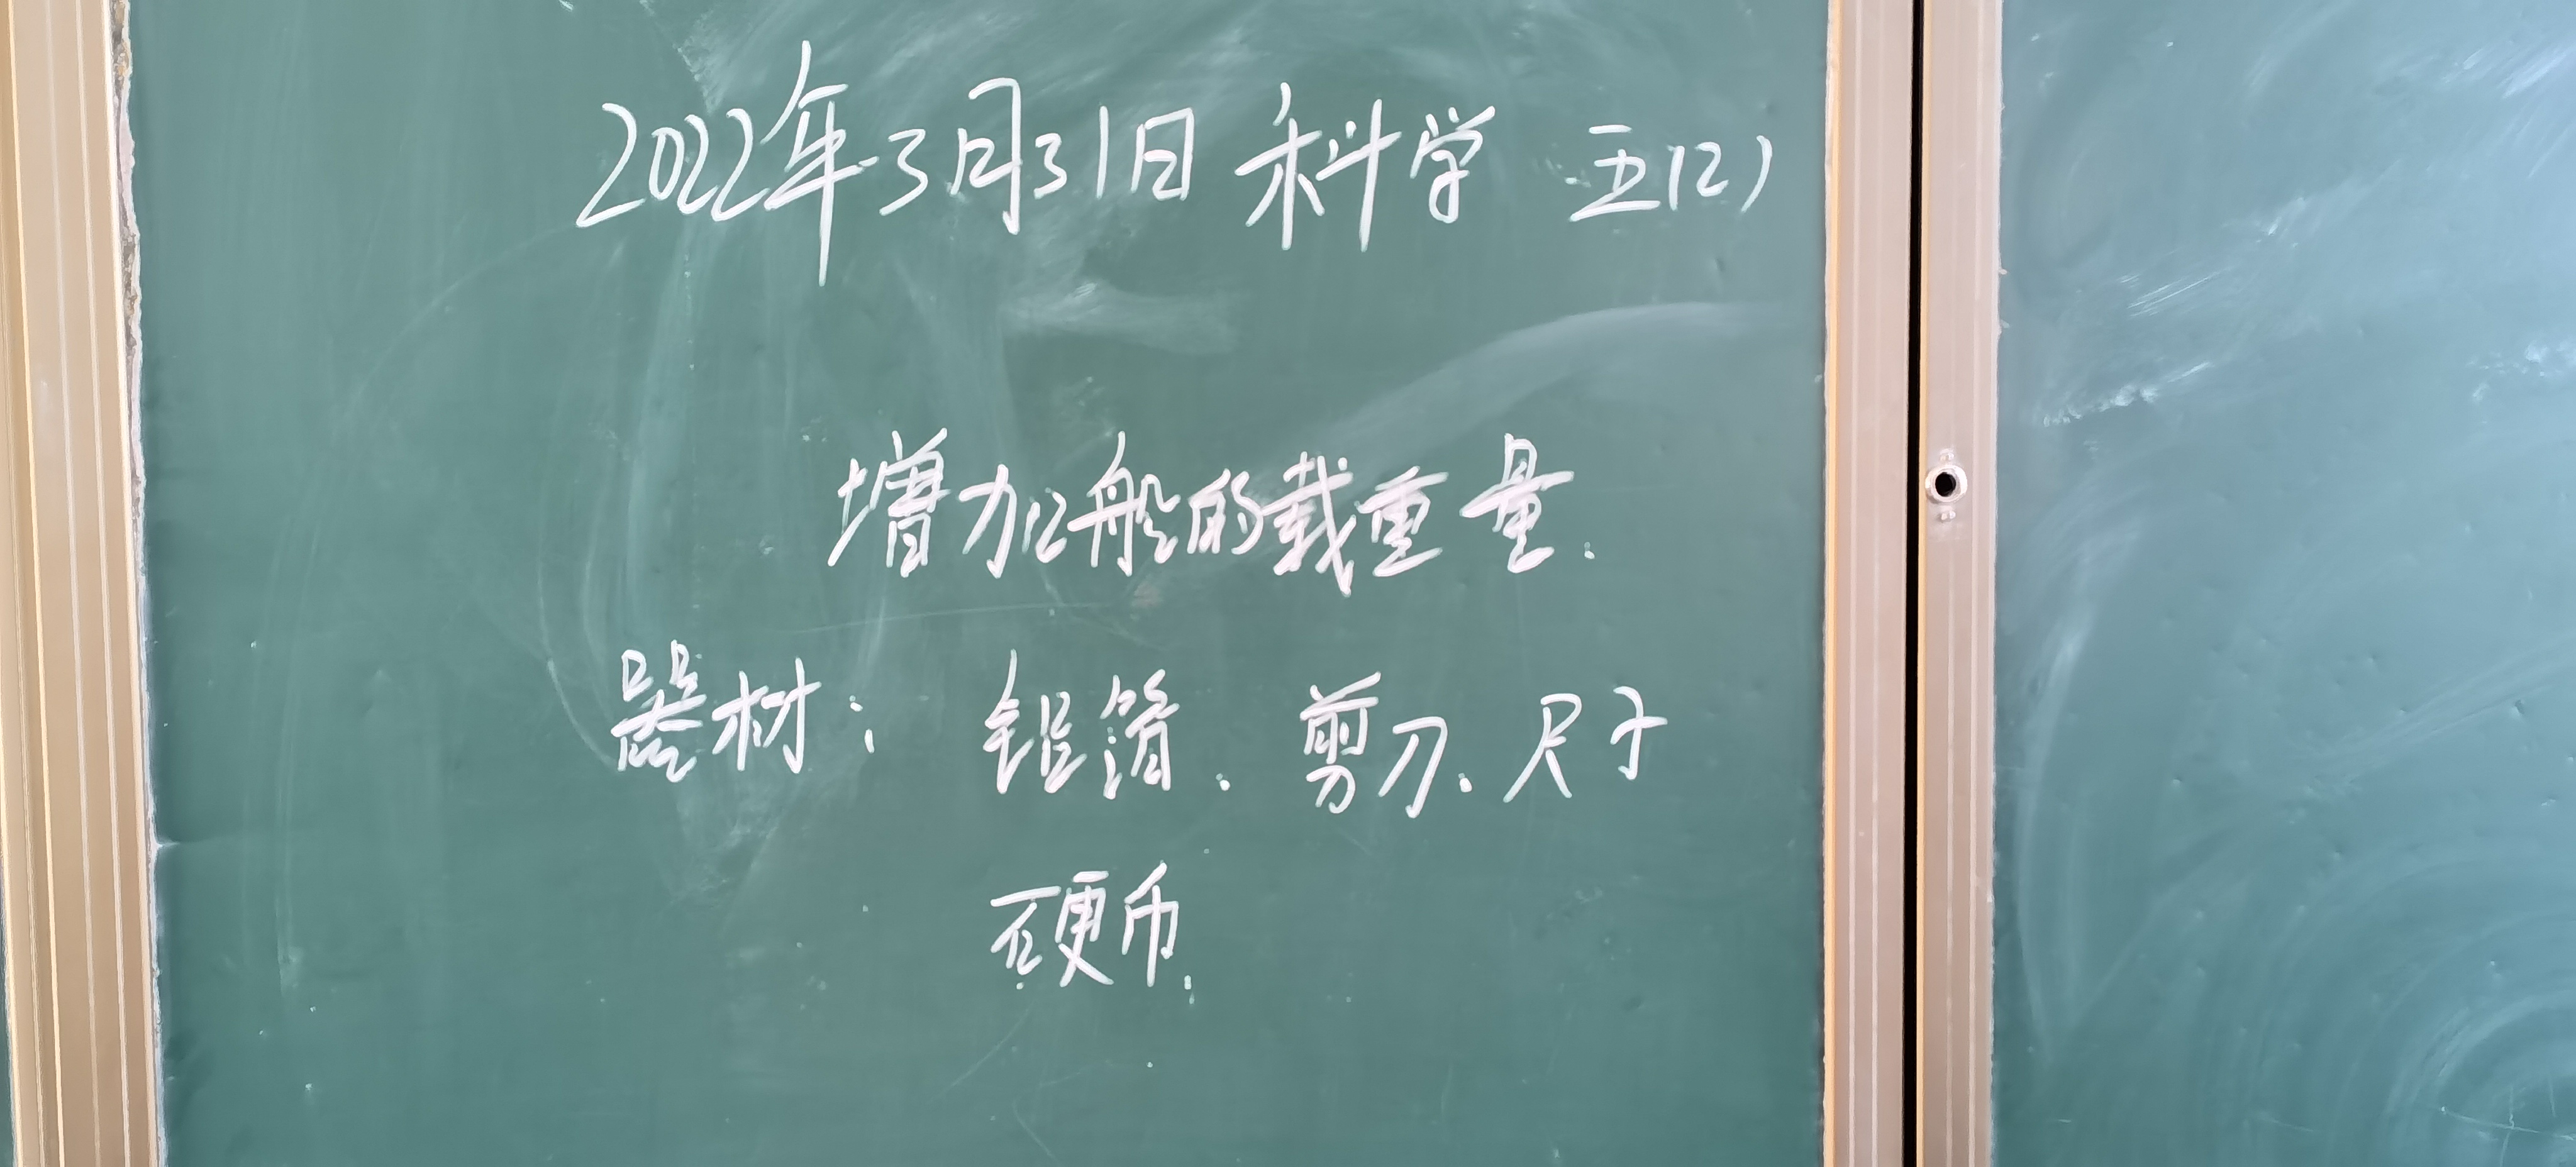 2022年3月31日 科学 五(2)
增加船的载重量.
器材: 铝箔、剪刀、尺子
硬币.